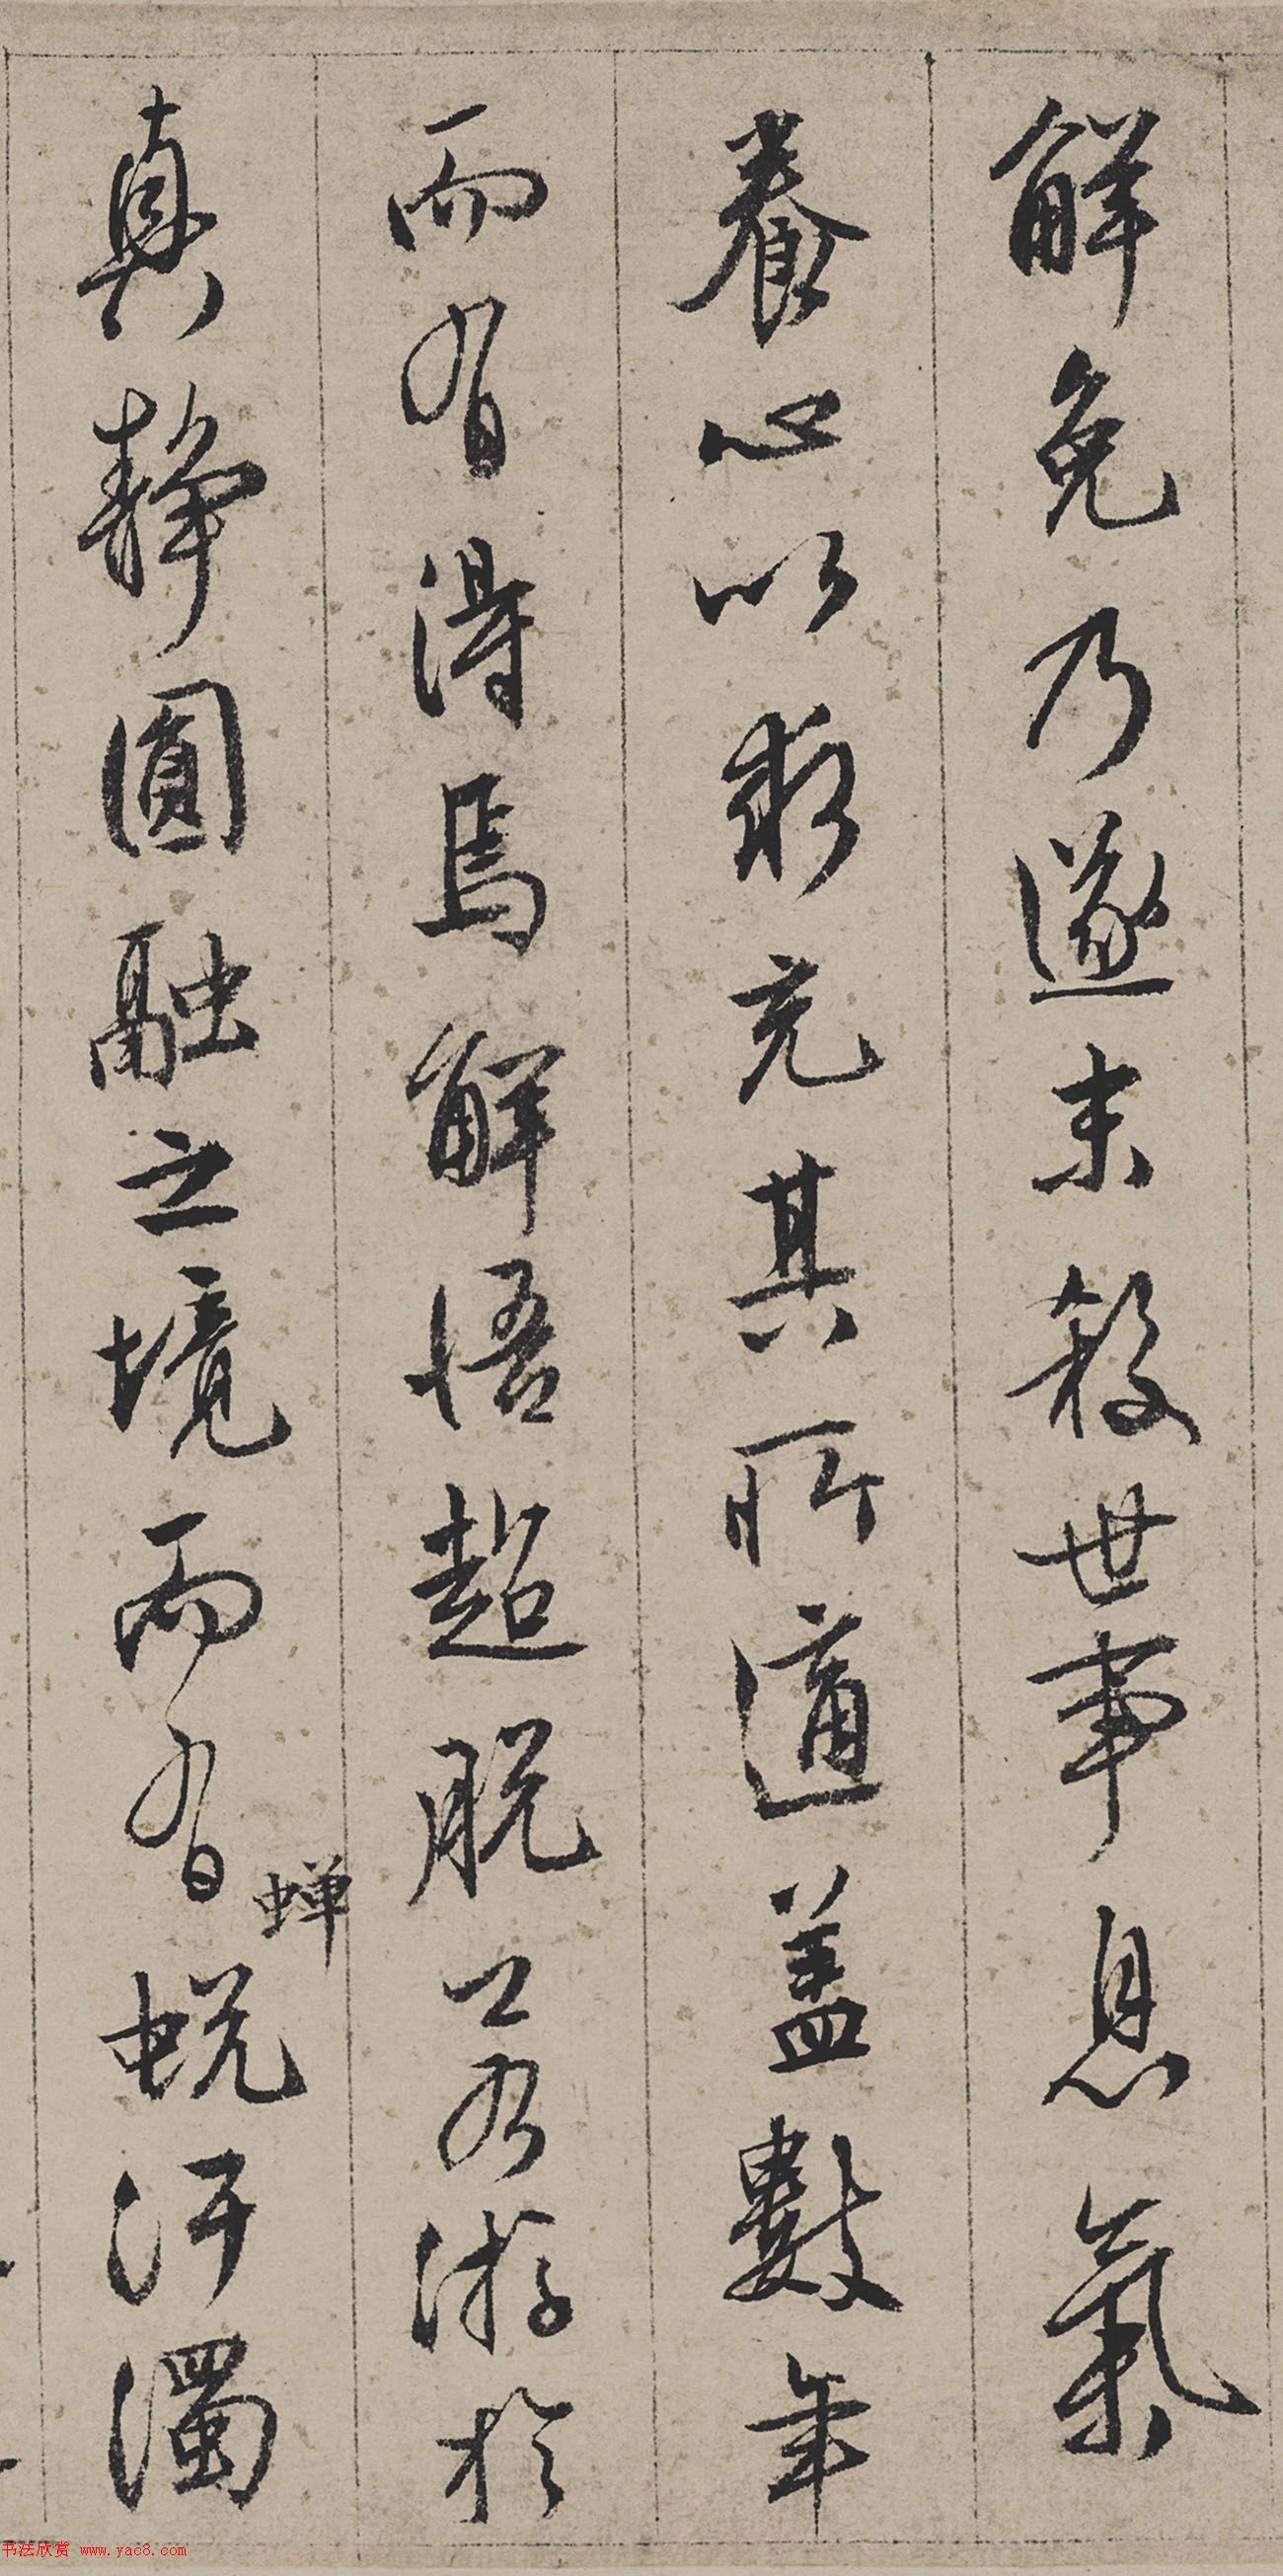 解免乃遂末殺世事息氣
養心以求充其所適盖數年
而有得焉解悟超脱已若游於
真靜圓融之境而有蟬蛻汙濁
书法欣赏 www.yac8.com